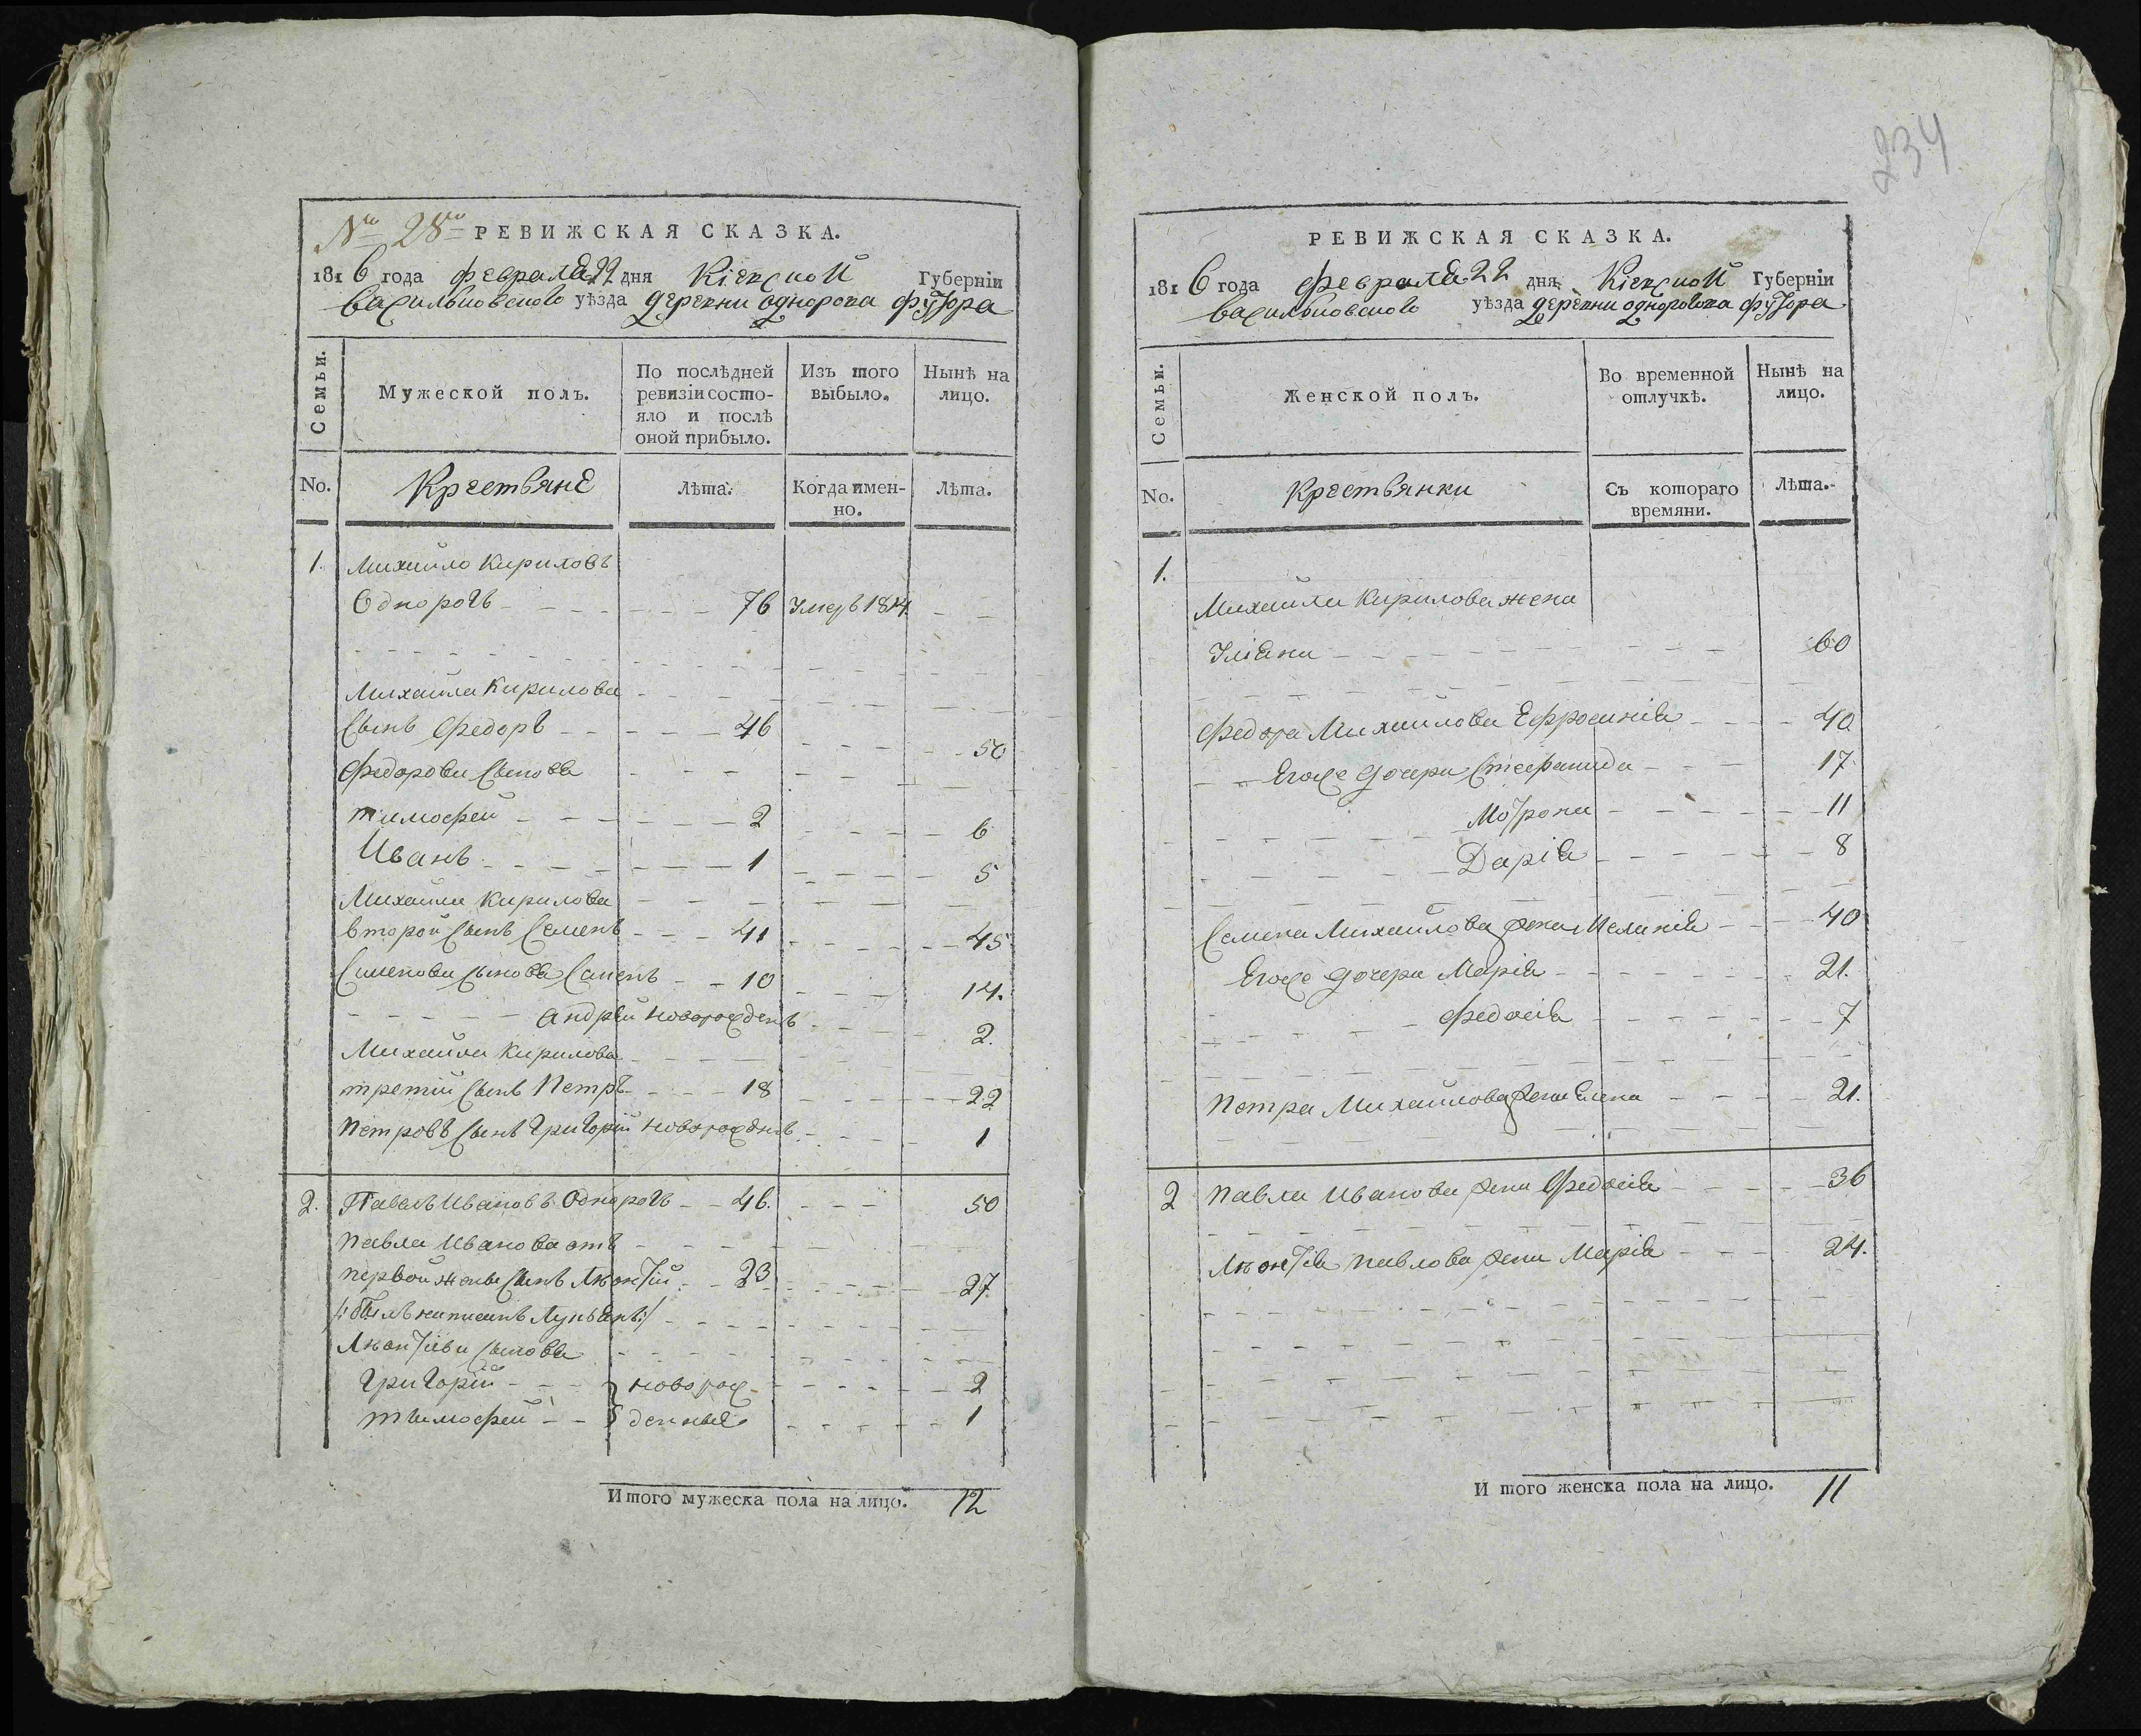 No 28
РЕВИЖСКАЯ СКАЗКА.
1816 года февраля 22 дня Кіевской Губерніи
васильковского уѣзда деревни однорога футора
Семьи.
Мужеской полъ.
По послѣдней ревизіи состояло и послѣ оной прибыло.
Изъ того выбыло.
Нынѣ на лицо.
No.
Крестьяне
Лѣта.
Когда имен-
но.
Лѣта.
1. Михайло Кириловъ
Однорогъ 76 Умеръ 1814
Михайла Кирилова
Сынъ Федоръ 46 50
Федорови Сынове
тимофей 2 6
Иванъ 1 5
Михайла Кирилова
второй Сынъ Семенъ 41 45
Семенови Сынове 10 14.
андрей новорожденъ 2.
Михайла Кирилова
третий Сынъ Петръ 18 22
Петровъ Сынъ Григорій новорожднъ 1
2. Павелъ Ивановъ Однорогъ 46. 50
Павла Иванова отъ
первой жены Сынъ Леонтій 23 27
/: былъ написанъ Лукьянъ :/
Леонтіеви Сынове
Григорій новорож- 2
тимофей денные 1
Итого мужеска пола на лицо. 12
234
РЕВИЖСКАЯ СКАЗКА.
1816 года февраля 22 дня Кіевской Губерніи
васильковского уѣзда деревни однорогова футора
Семьи.
Женской полъ.
Во временной отлучкѣ.
Нынѣ на лицо.
No.
Крестьянки
Съ котораго
времяни.
Лѣта.
1.
Михайла Кирилова жена
Уліяна 60
Федора Михайлова Ефросинія 40
Егоже дочери Стефанида 17
Мотрона 11
Дарія 8
Семена Михайлова жена Меланія 40
Егоже дочери Марія 21.
Федосія 7
Петра Михайлова жена Елена 21.
2 Павла Иванова жена Федосія 36
Леонтія Павлова жена Марія 24.
И того женска пола на лицо. 11